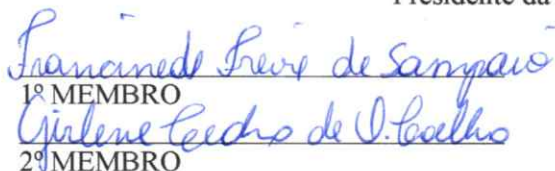 Presidente da
Francinede Freire de Sampaio
1º MEMBRO
Girlene Cedro de O. Coelho
2º MEMBRO